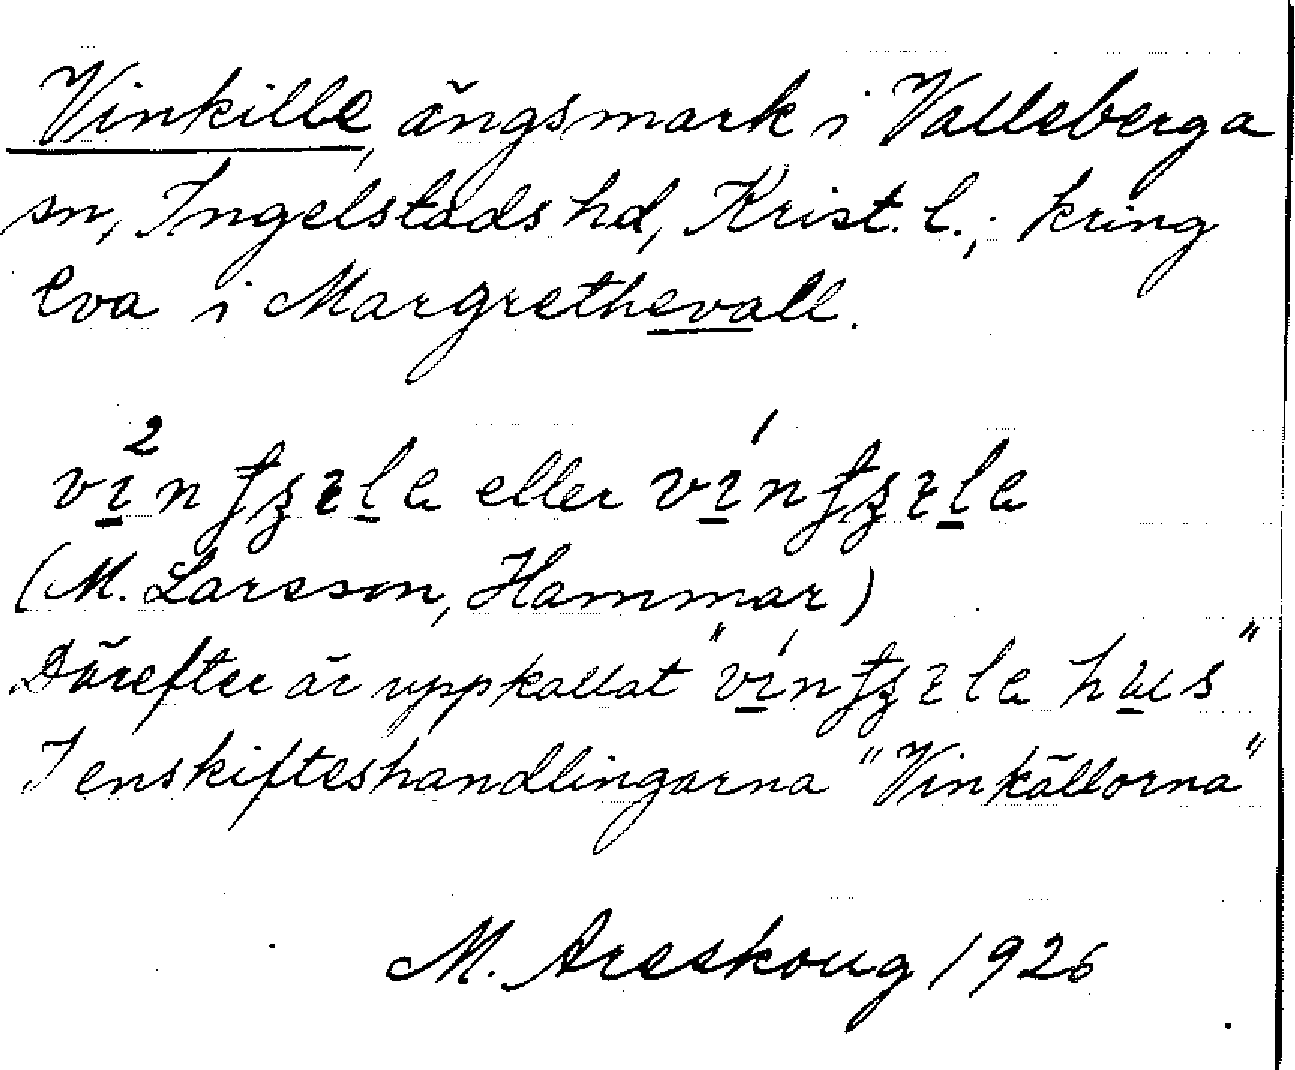 Vinkille, ängsmark i Valleberga
sn, Ingelstads hd, Krist. l.; kring
eva i Margrethevall.
eller
(M. Larsson, Hammar)
Därefter är uppkallat
I enskifteshandlingarna "Vinkällorna"
M. Areskoug 1926